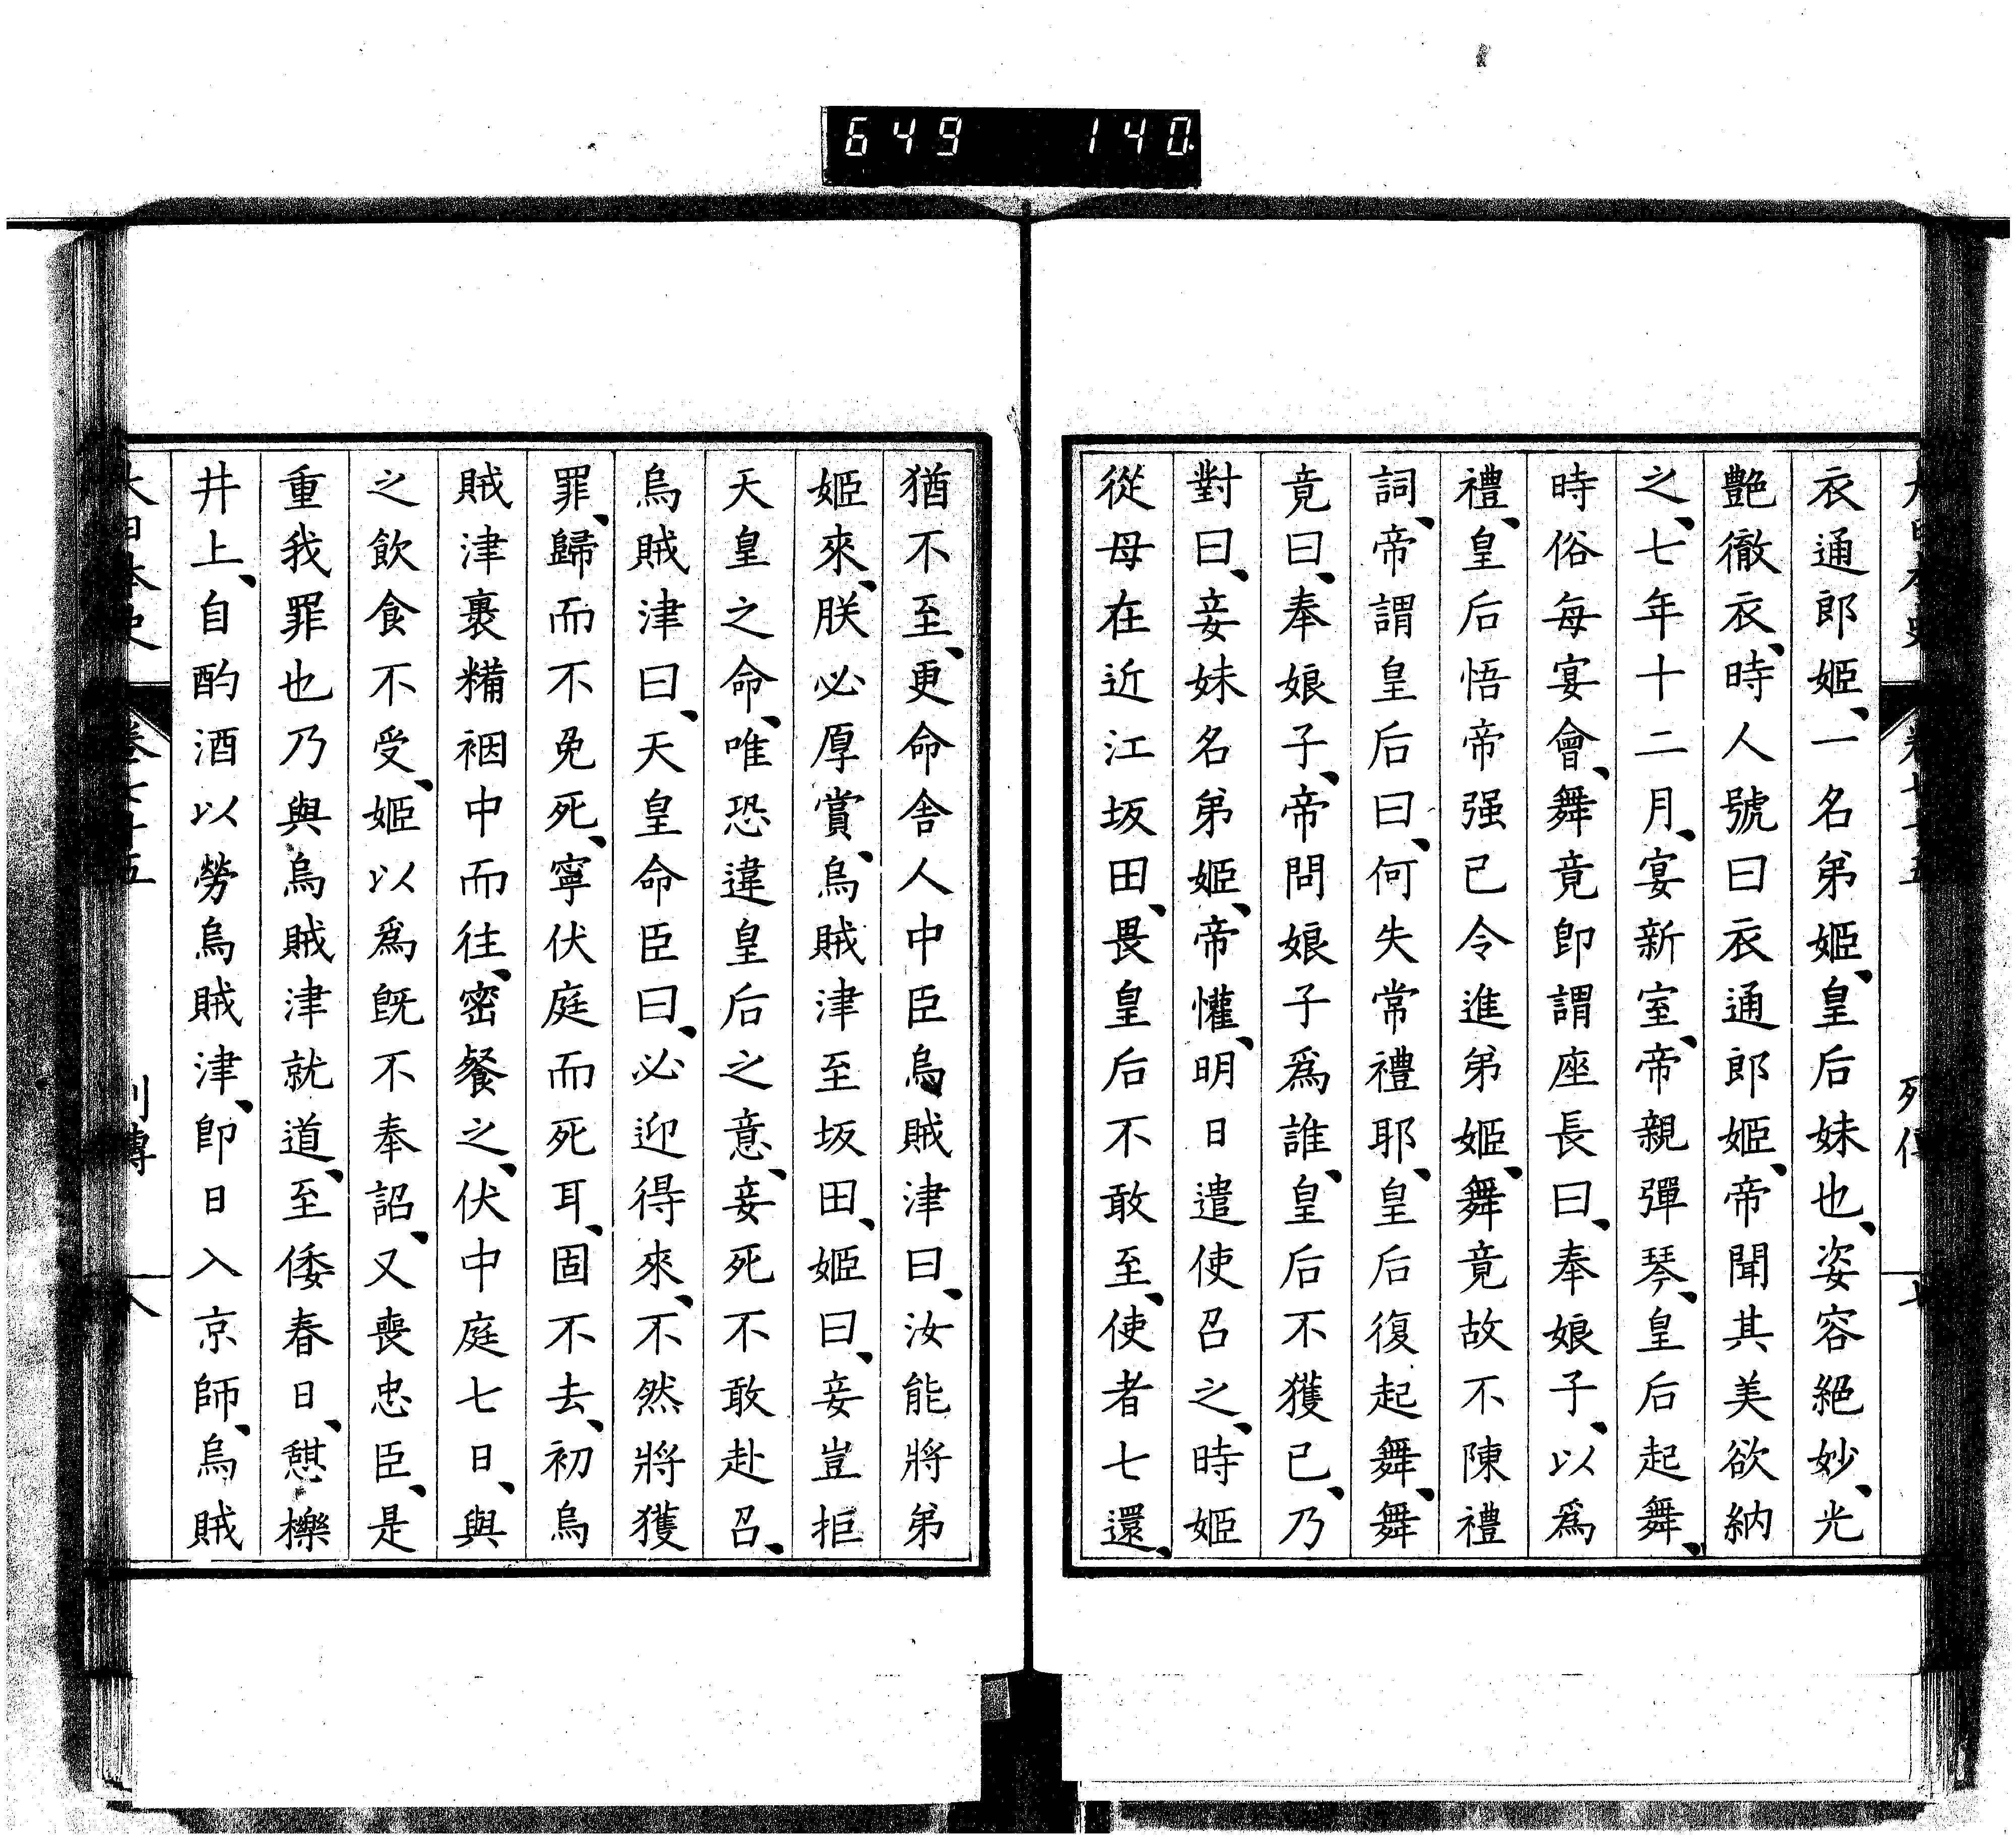 649 140
衣通郎姬、一名弟姬、皇后妹也、姿容絕妙、光
艶徹衣、時人號曰衣通郎姬、帝聞其美欲納
之、七年十二月、宴新室、帝親彈琴、皇后起舞、
時俗每宴會、舞竟卽謂座長曰、奉娘子、以爲
禮、皇后悟帝强已令進弟姬、舞竟故不陳禮
詞、帝謂皇后曰、何失常禮耶、皇后復起舞、舞
竟曰、奉娘子、帝問娘子爲誰、皇后不獲已、乃
對曰、妾妹名弟姬、帝懽、明日遣使召之、時姬
從母在近江坂田、畏皇后不敢至、使者七還、
猶不至、更命舍人中臣烏賊津曰、汝能將弟
姬來、朕必厚賞、烏賊津至坂田、姬曰、妾豈拒
天皇之命、唯恐違皇后之意、妾死不敢赴召、
烏賊津曰、天皇命臣曰、必迎得來、不然將獲
罪、歸而不免死、寧伏庭而死耳、固不去、初烏
賊津裹糒裀中而往、密餐之、伏中庭七日、與
之飮食不受、姬以爲旣不奉詔、又喪忠臣、是
重我罪也乃與烏賊津就道、至倭春日、憇櫟
井上、自酌酒以勞烏賊津、卽日入京師、烏賊